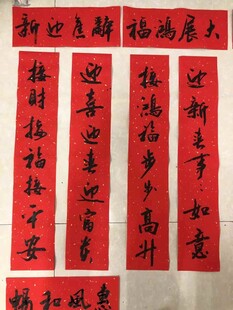 大展鴻福
辭舊迎新
迎新春事事如意
接鴻福步步高升
迎喜迎春迎富貴
接財接福接平安
惠風和暢